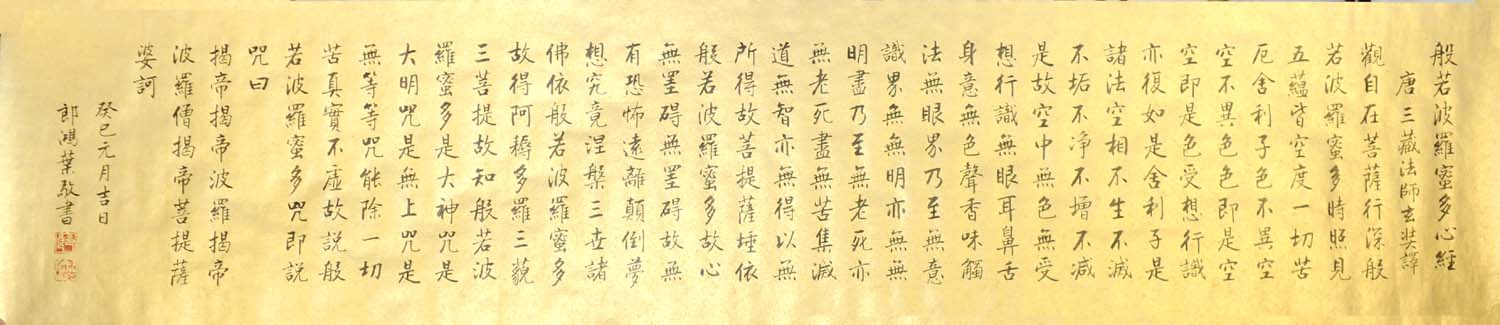 般若波羅蜜多心經
唐三藏法師玄奘譯
觀自在菩薩行深般
若波羅蜜多時照見
五蘊皆空度一切苦
厄舍利子色不異空
空不異色色即是空
空即是色受想行識
亦復如是舍利子是
諸法空相不生不滅
不垢不净不增不减
是故空中無色無受
想行識無眼耳鼻舌
身意無色聲香味觸
法無眼界乃至無意
識界無無明亦無無
明盡乃至無老死亦
無老死盡無苦集滅
道無智亦無得以無
所得故菩提薩埵依
般若波羅蜜多故心
無罣碍無罣碍故無
有恐怖遠離顛倒夢
想究竟涅槃三世諸
佛依般若波羅蜜多
故得阿耨多羅三藐
三菩提故知般若波
羅蜜多是大神咒是
大明咒是無上咒是
無等等咒能除一切
苦真實不虛故説般
若波羅蜜多咒即説
咒曰
揭帝揭帝波羅揭帝
波羅僧揭帝菩提薩
婆訶
癸巳元月吉日
郎鴻葉敬書